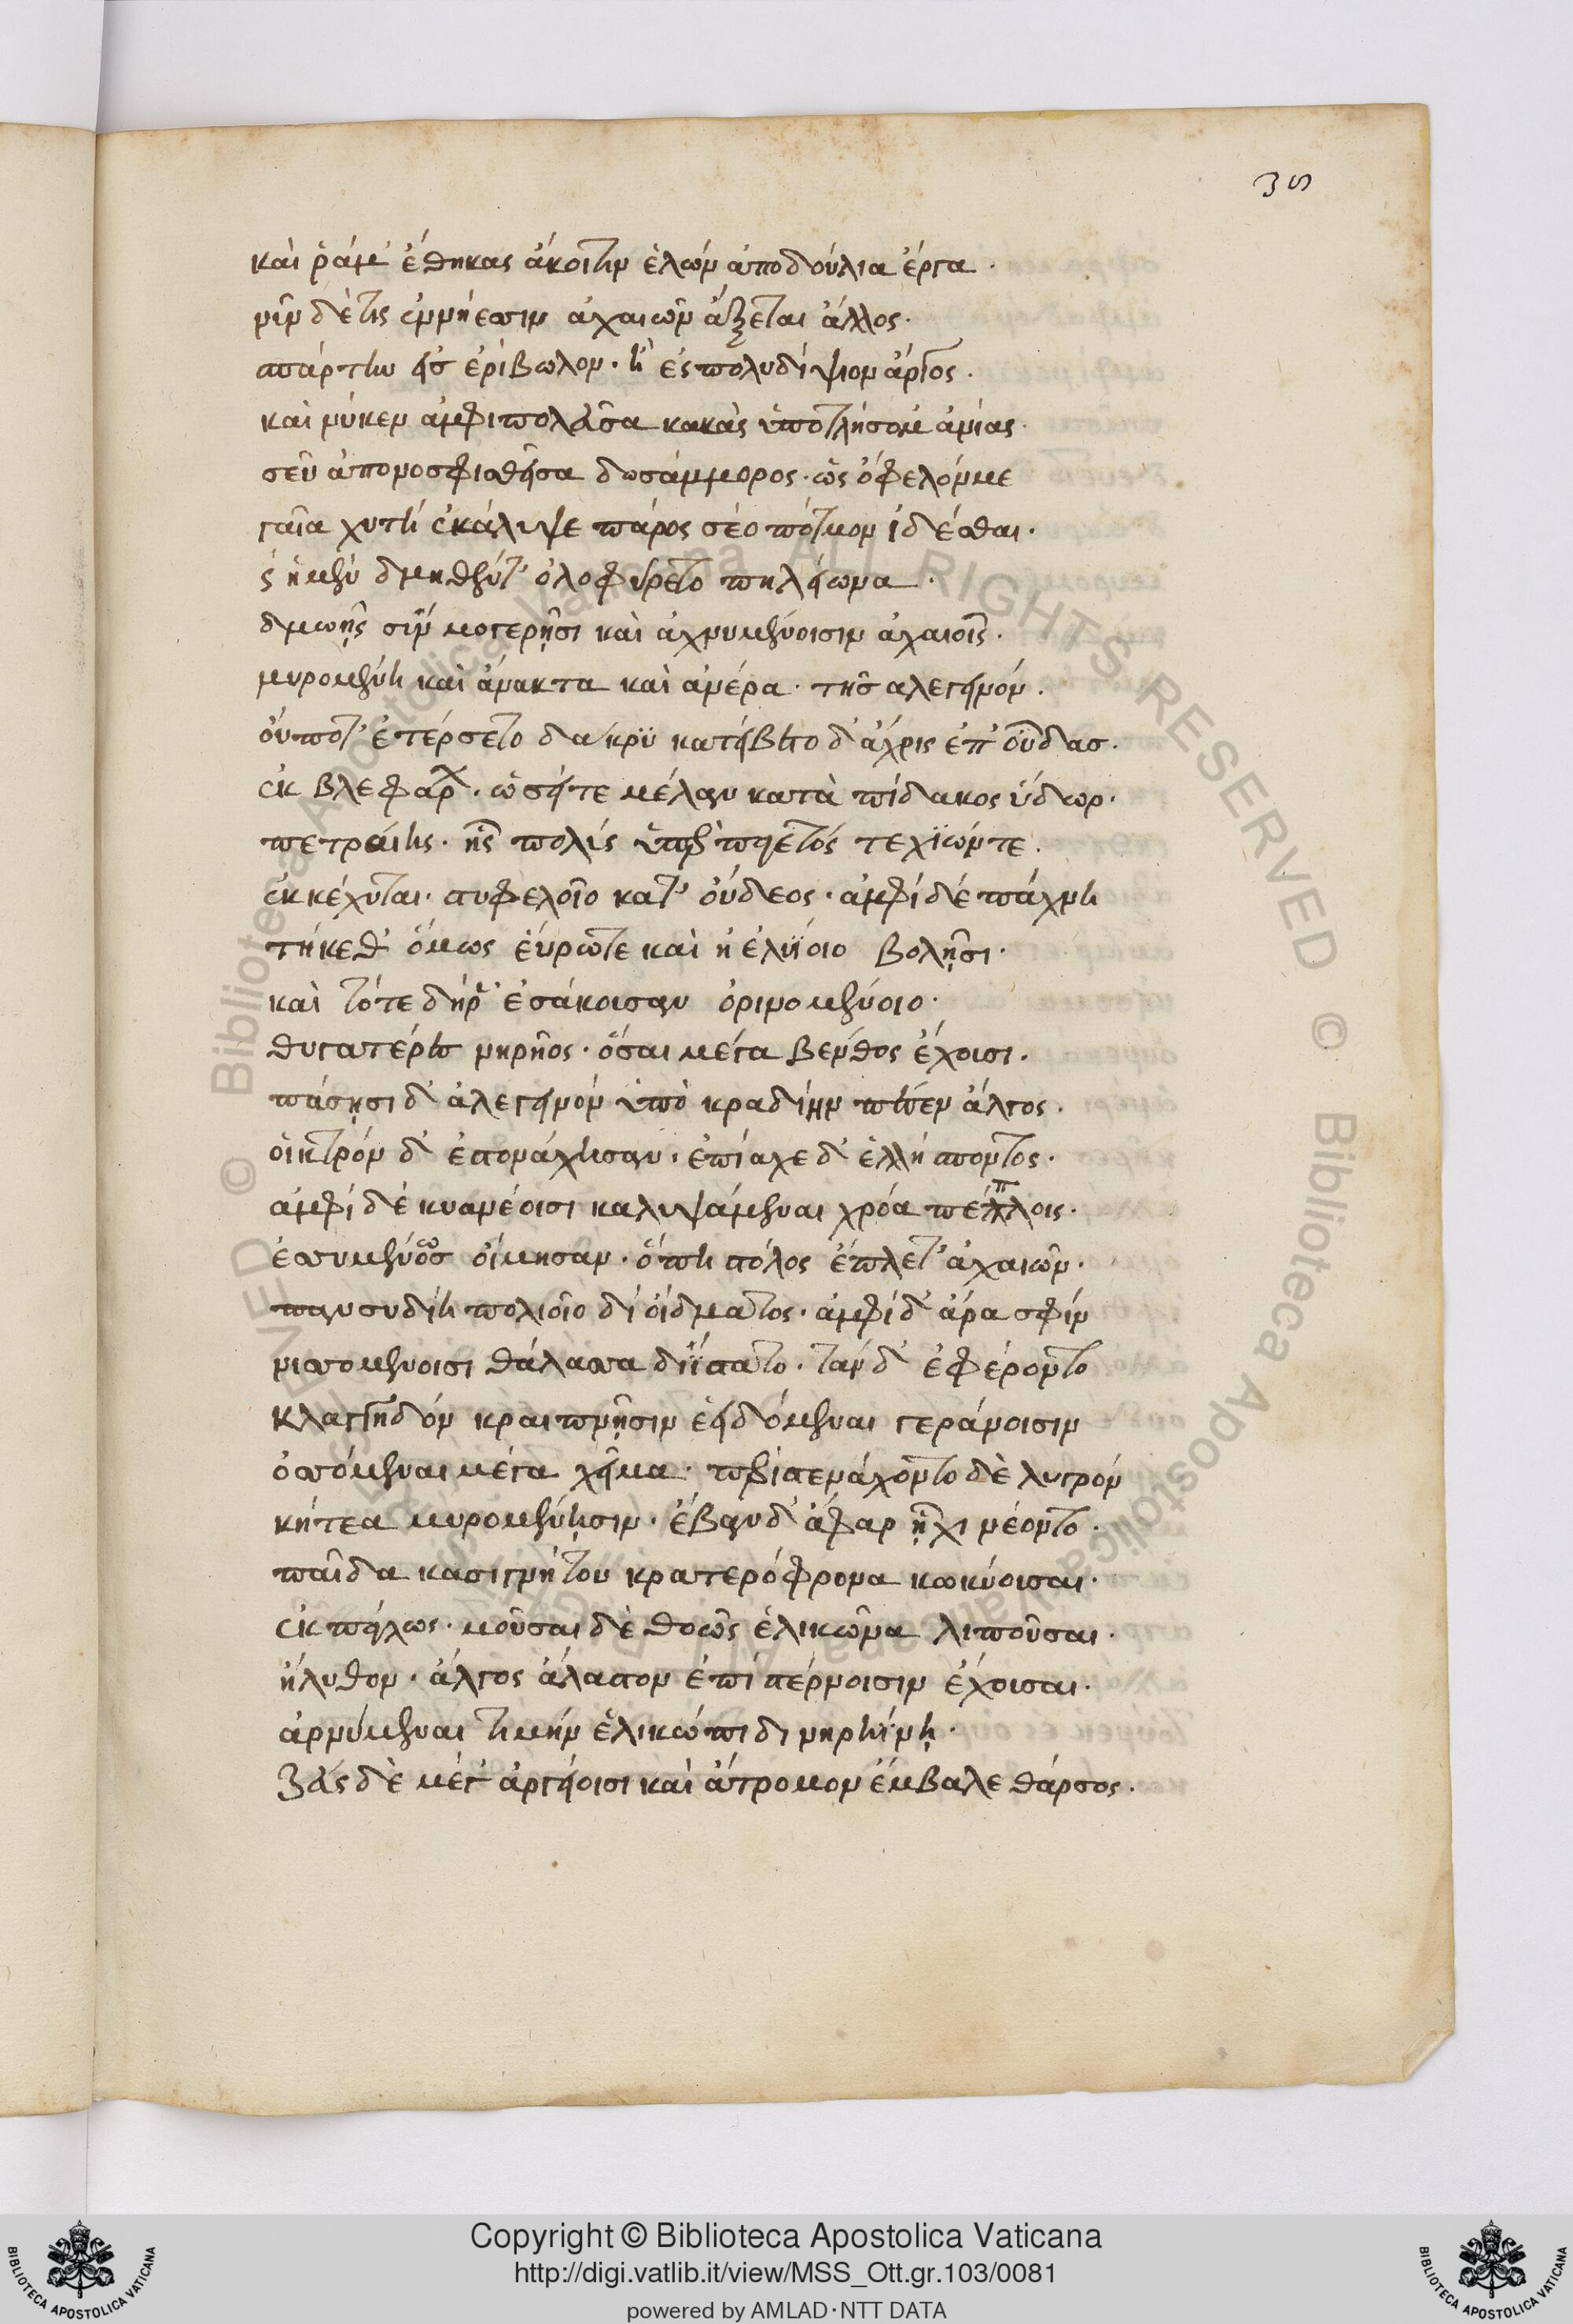 36
καί ῥά μ' ἔθηκας ἄκοιτιν ἑλὼν ἀπο δούλια ἔργα.
νῦν δέ τις ἐν νήεσσιν ἀχαιῶν ἄξεται ἄλλος.
σπάρτην εἰσ ἐρίβωλον. ἢ ἐς πολυδίψιον ἄργος.
καὶ νύ κεν ἀμφιπολεῦσα κακὰς ὑποτλήσομ' ἀνίας.
σεῦ ἀπονοσφισθεῖσα δυσάμμορος. ὡς ὄφελόν με
γαῖα χυτὴ ἐκάλυψε πάρος σέο πότμον ἰδέσθαι.
ς ἡ μὲν δμηθέντ' ὀλοφύρετο πηλείωνα.
δμωῇς σὺν μογερῇσι καὶ ἀχνυμένοισιν ἀχαιοῖς.
μυρομένη καὶ ἄνακτα καὶ ἀνέρα. τῆσ ἀλεγεινὸν.
οὔποτ' ἐτέρσετο δάκρυ κατείβετο δ' ἄχρις ἐπ' οὖδασ.
ἐκ βλεφάρων. ὡσείτε μέλαν κατὰ πίδακος ὕδωρ.
πετραίης. ἧς πολὺς ὑπὲρ παγετός τε χιών τε.
ἐκκέχυται. στυφελοῖο κατ' οὔδεος. ἀμφὶ δὲ πάχνη
τήκεθ' ὅμως εὔρωτε καὶ ἠελίοιο βολῇσι.
καὶ τότε δήρ' ἐσάκουσαν ὀρινομένοιο.
θυγατέρεσ νηρῆος. ὅσαι μέγα βένθος ἔχουσι.
πάσῃσι δ' ἀλεγεινὸν ὑπὸ κραδίην πέσεν ἄλγος.
οἰκτρὸν δ' ἐστονάχησαν. ἐπίαχε δ' ἑλλήσποντος.
ἀμφὶ δὲ κυανέοισι καλυψάμεναι χρόα πέπλοις.
ἐσσυμένως οἴμησαν. ὅπη στόλος ἔπλετ' ἀχαιῶν.
πανσυδίη πολιοῖο δι' οἴδματος. ἀμφὶ δ' ἄρα σφιν
νισσομένοισι θάλασσα διίστατο. ταὶ δ' ἐφέροντο
κλαγγηδὸν κραιπνῇσιν ἐειδόμεναι γεράνοισιν
ὀσσόμεναι μέγα χεῖμα. περιστενάχοντο δὲ λυγρὸν
κήτεα μυρομένῃσιν. ἔβαν δ' ἄφαρ ᾗχι νέοντο.
παῖδα κασιγνήτου κρατερόφρονα κωκύουσαι.
ἐκπάγλως. μοῦσαι δὲ θοῶς ἑλικῶνα λιποῦσαι.
ἤλυθον. ἄλγος ἄλαστον ἐπὶ στέρνοισιν ἔχουσαι.
ἀρνύμεναι τιμὴν ἑλικώπιδι νηρηΐνῃ.
ζεὺς δὲ μέγ' ἀργείοισι καὶ ἄτρομον ἔμβαλε θάρσος.
Copyright © Biblioteca Apostolica Vaticana
http://digi.vatlib.it/view/MSS_Ott.gr.103/0081
powered by AMLAD·NTT DATA